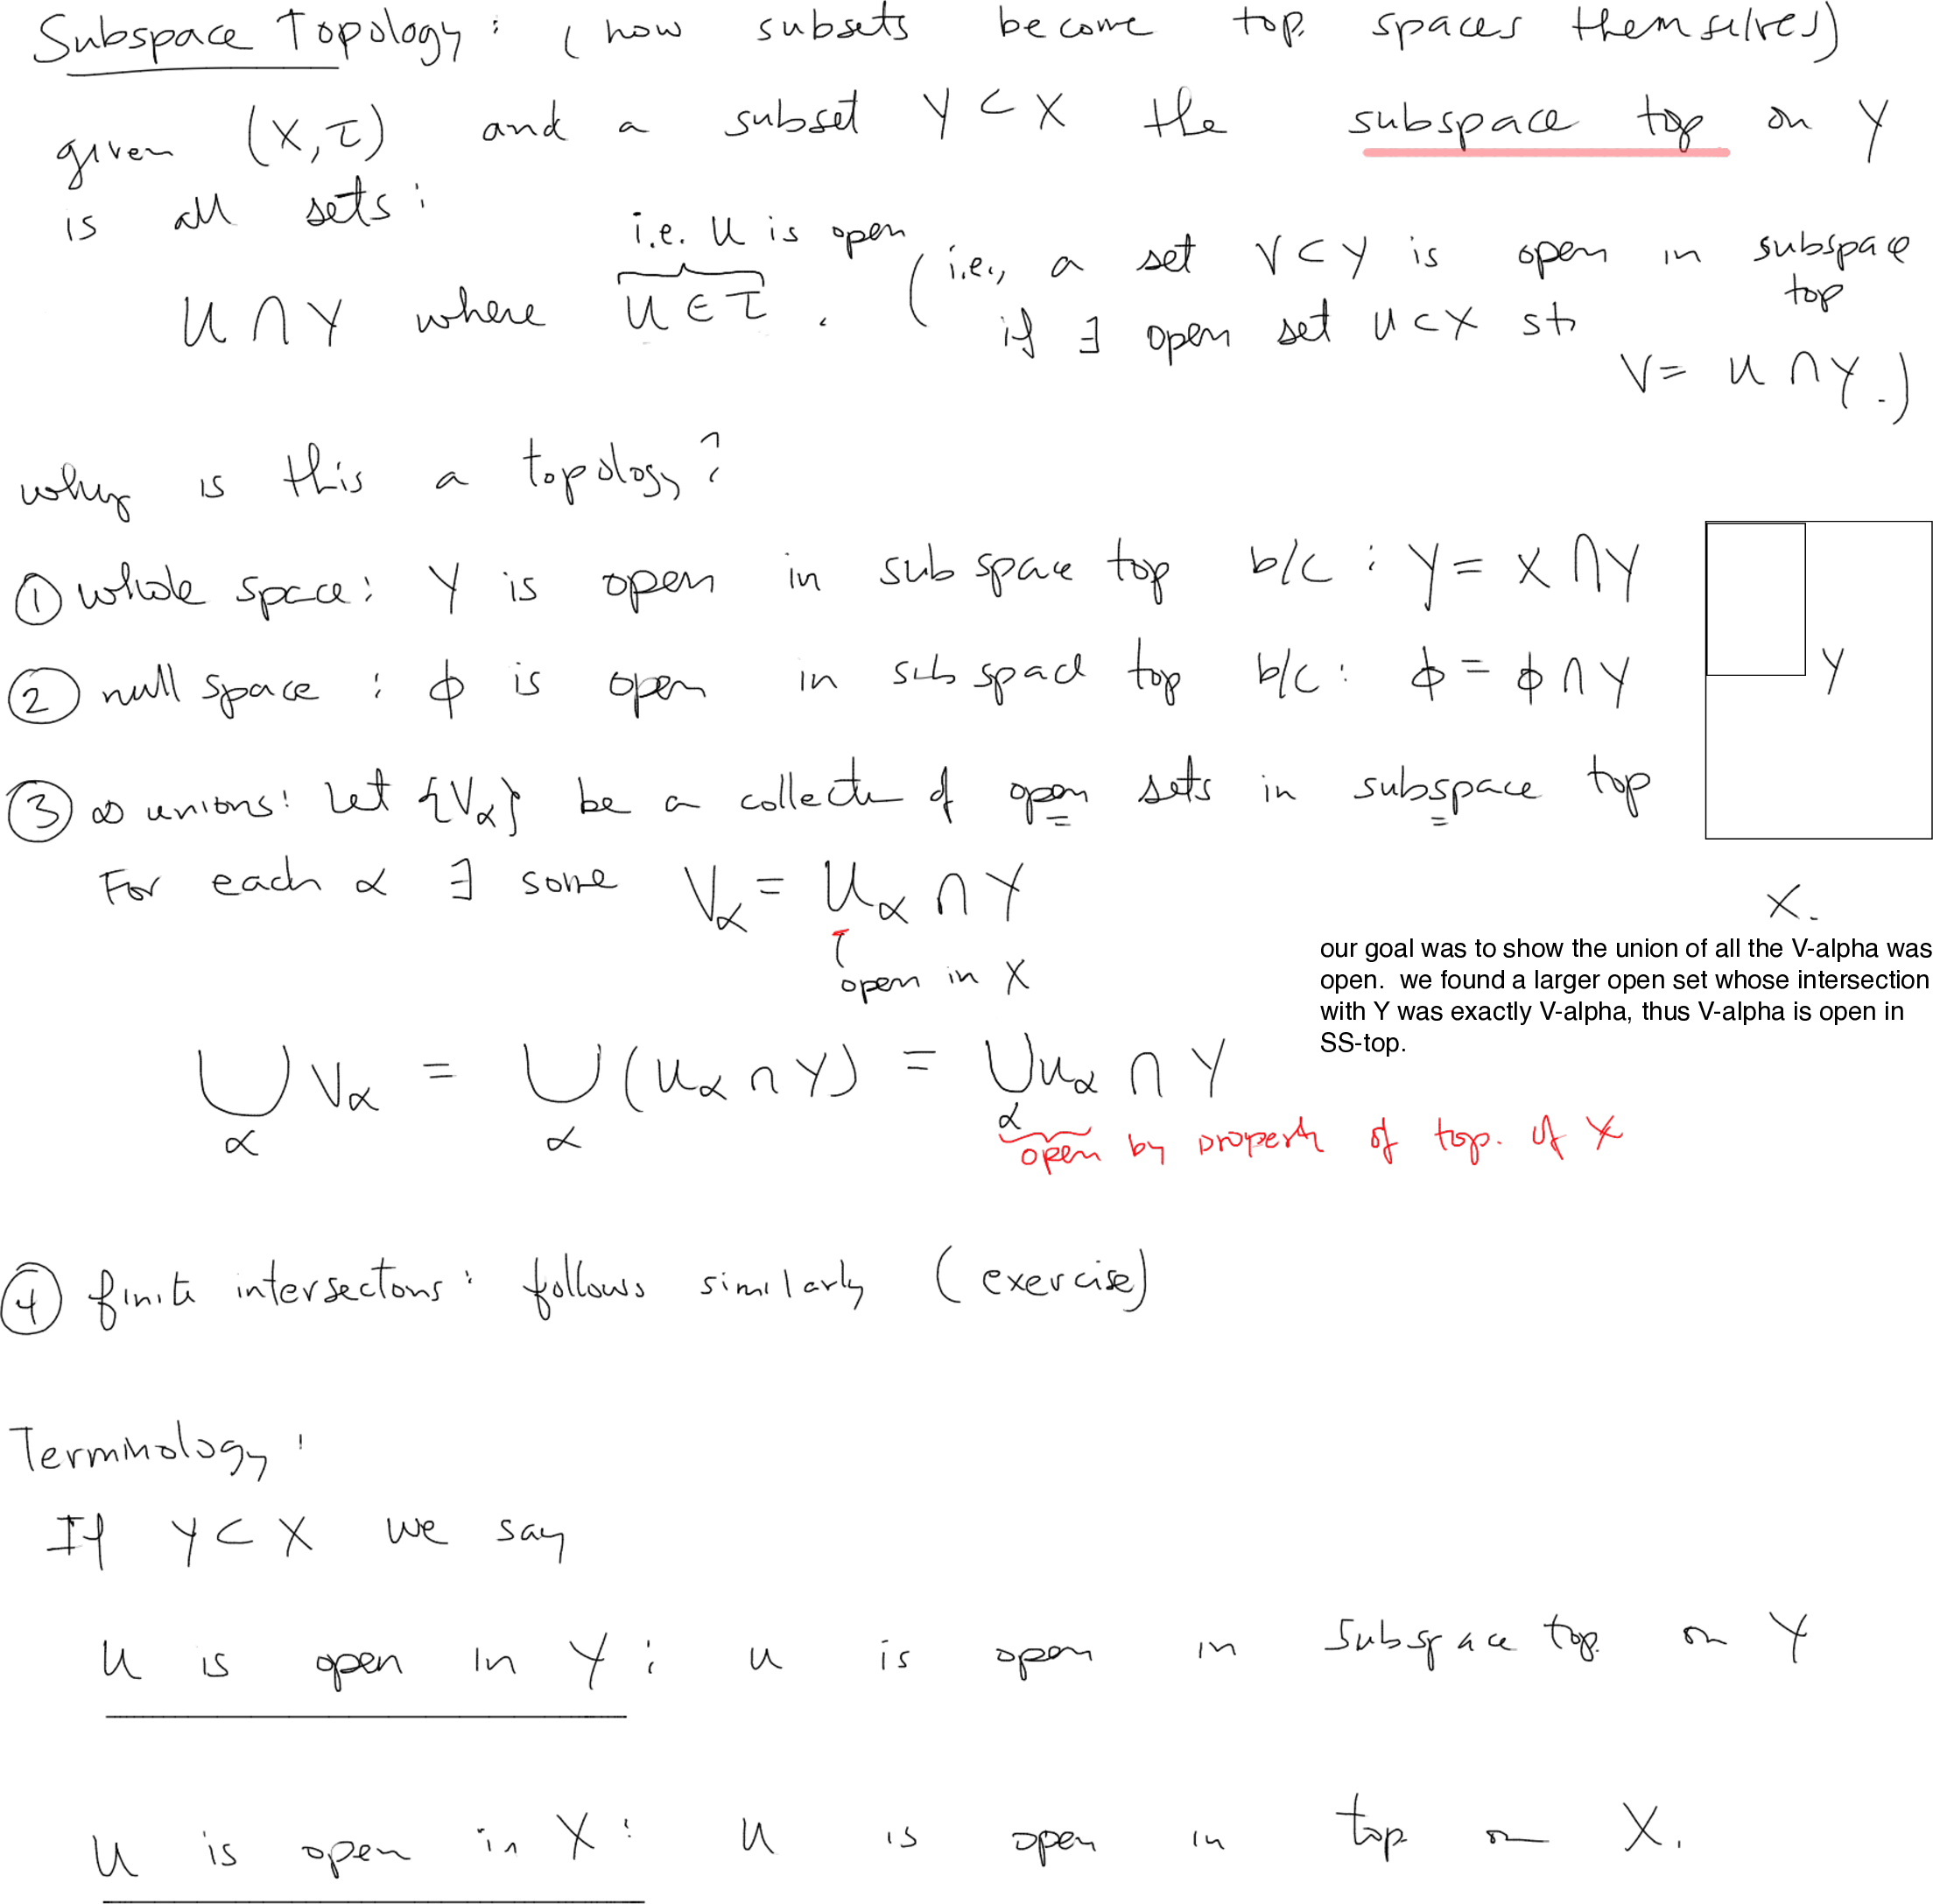 Subspace Topology: (how subsets become top. spaces themselves)
given (X, τ) and a subset Y ⊂ X the subspace top on Y
is all sets:
i.e. U is open
U ∩ Y where U ∈ τ. (i.e., a set V ⊂ Y is open in subspace top
if ∃ open set U ⊂ X st
V = U ∩ Y.)
why is this a topology?
① whole space: Y is open in subspace top b/c: Y = X ∩ Y
② null space: ϕ is open in subspace top b/c: ϕ = ϕ ∩ Y
Y
③ ∞ unions: Let {Vα} be a collectn of open sets in subspace top
For each α ∃ some Vα = Uα ∩ Y
X.
open in X
our goal was to show the union of all the V-alpha was
open. we found a larger open set whose intersection
with Y was exactly V-alpha, thus V-alpha is open in
SS-top.
⋃α Vα = ⋃α (Uα ∩ Y) = ⋃α Uα ∩ Y
open by property of top. of X
④ finite intersectons: follows similarly (exercise)
Terminology:
If Y ⊂ X we say
U is open in Y: U is open in subspace top. on Y
U is open in X: U is open in top. on X.